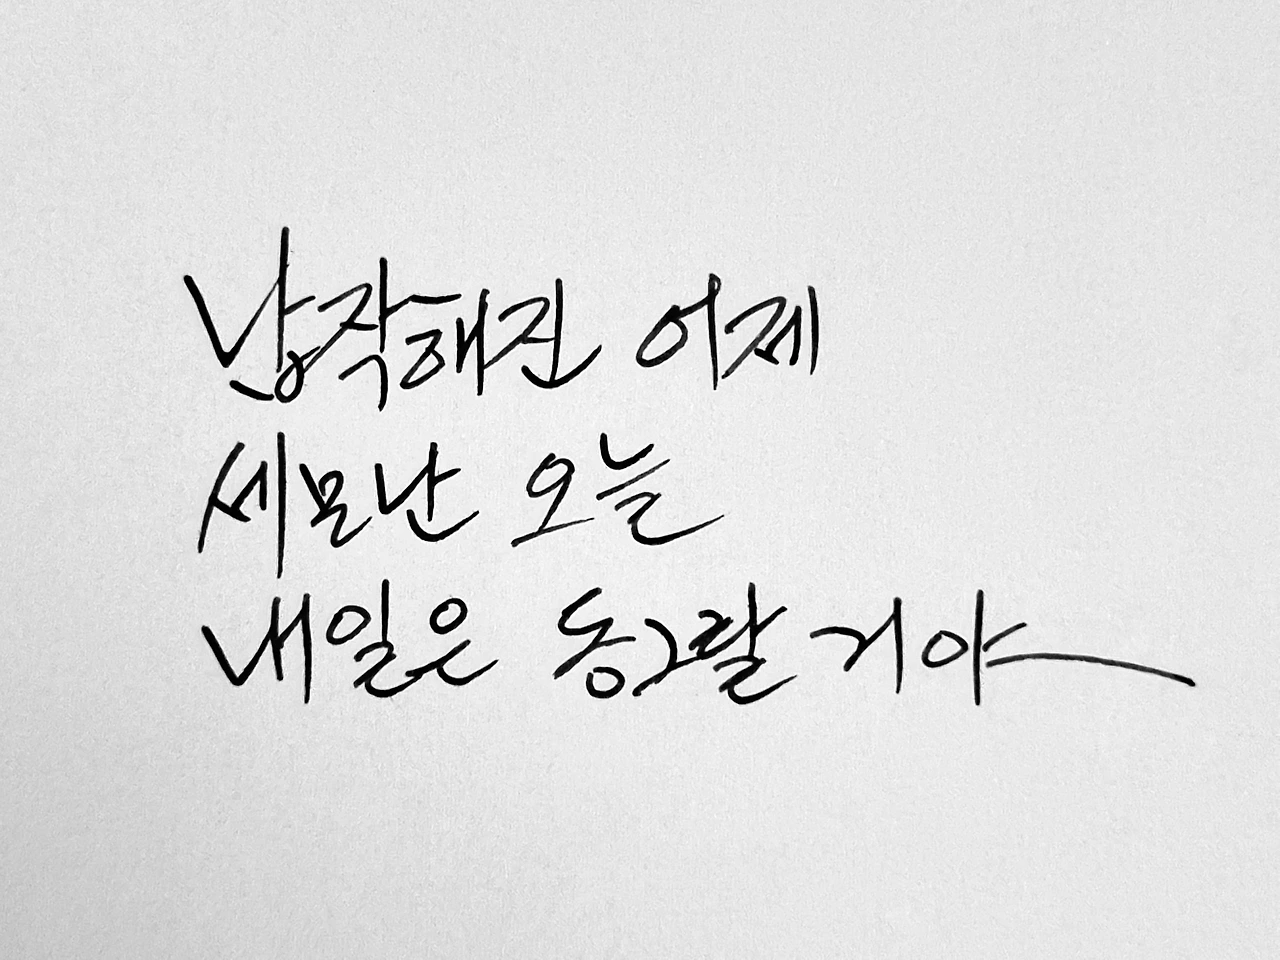 납작해진 어제
세모난 오늘
내일은 동그랄 거야